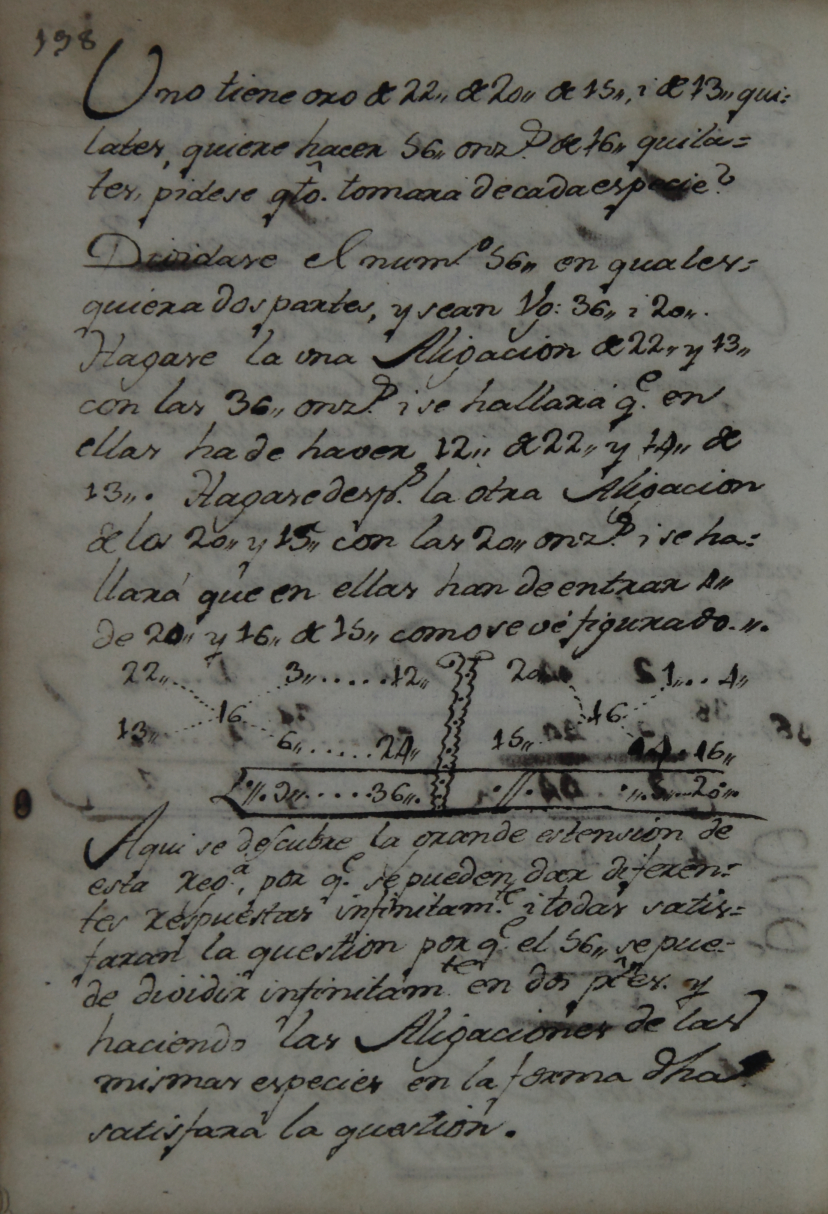 198
Uno tiene oro de 22,, de 20,, de 15,, i de 13,, qui=
lates, quiere hacer 56,, onz.s de 16,, quila=
tes, pidese qto. tomara de cada especie?
Dividase el num.o 56,, en quales=
quiera dos partes, y sean Vg: 36,, i 20,,.
Hagase la una Aligacion de 22,, y 13,,
con las 36,, onz.s i se hallará q.e en
ellas ha de haver 12,, de 22,, y 14,, de
13,,. Hagase desp.s la otra Aligacion
de los 20,, y 15,, con las 20,, onz.s i se ha=
llará que en ellas han de entrar 4,,
de 20,, y 16,, de 15,, como se vé figurado.,,.
22,, 3,,.....12,, 20 1,,... 4,,
16 16
13,, 6,,.....24,, 15,, 4.. 16,,
9,,.....36,,. 5,,...20,,.
Aqui se descubre la grande estension de
esta reg.a, por q.e se pueden dar diferen=
tes respuestas infinitam.te i todas satis=
faran la question por q.e el 56,, se pue=
de dividir infinitam.te en dos ptes. y
haciendo las Aligaciones de las
mismas especies en la forma dha
satisfará la question.